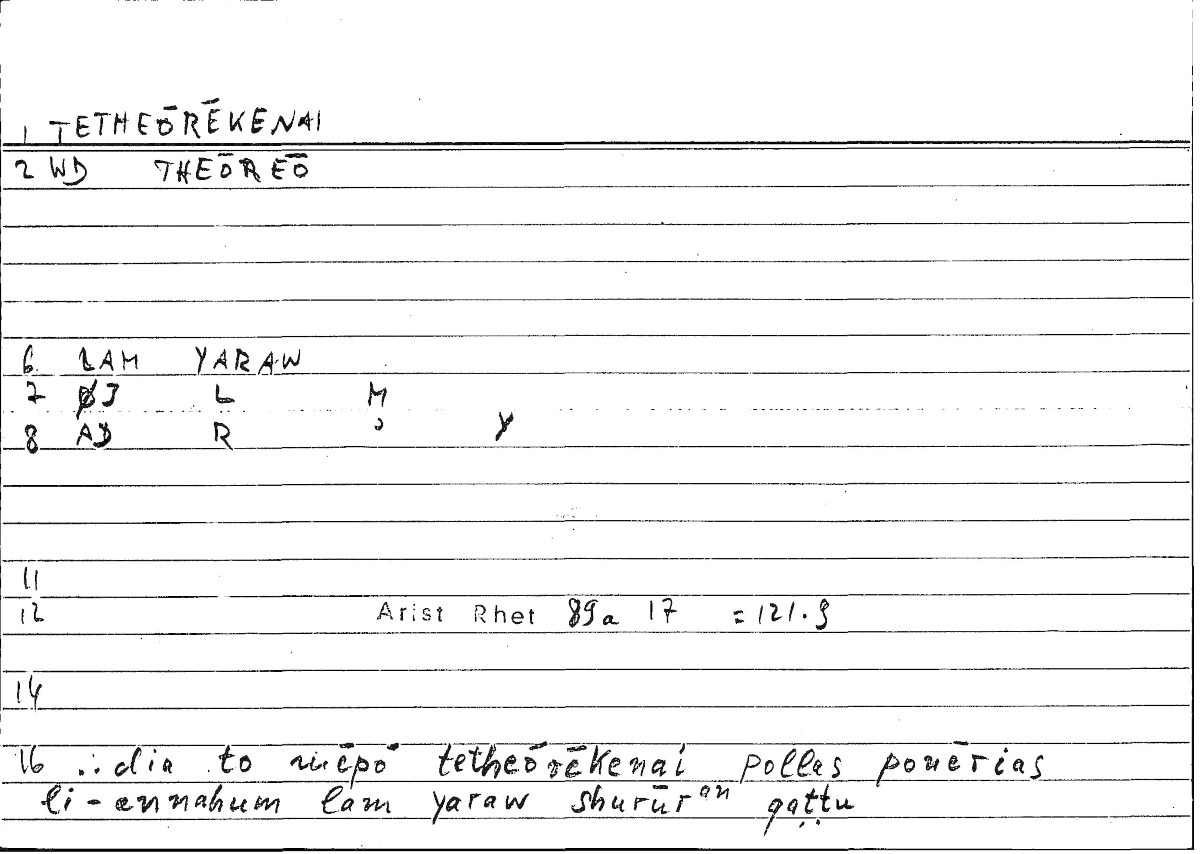 1 TETHEŌRĒKENAI
2 WD THEŌREŌ
6. LAM YARAW
7 ØJ L M
8 AD R ʾ Y
11
12 Arist Rhet 89a 17 = 121.9
14
16 .:dia to mēpō tetheōrēkenai pollas ponērias
li-annahum lam yaraw shurūrᵃⁿ qaṭṭu